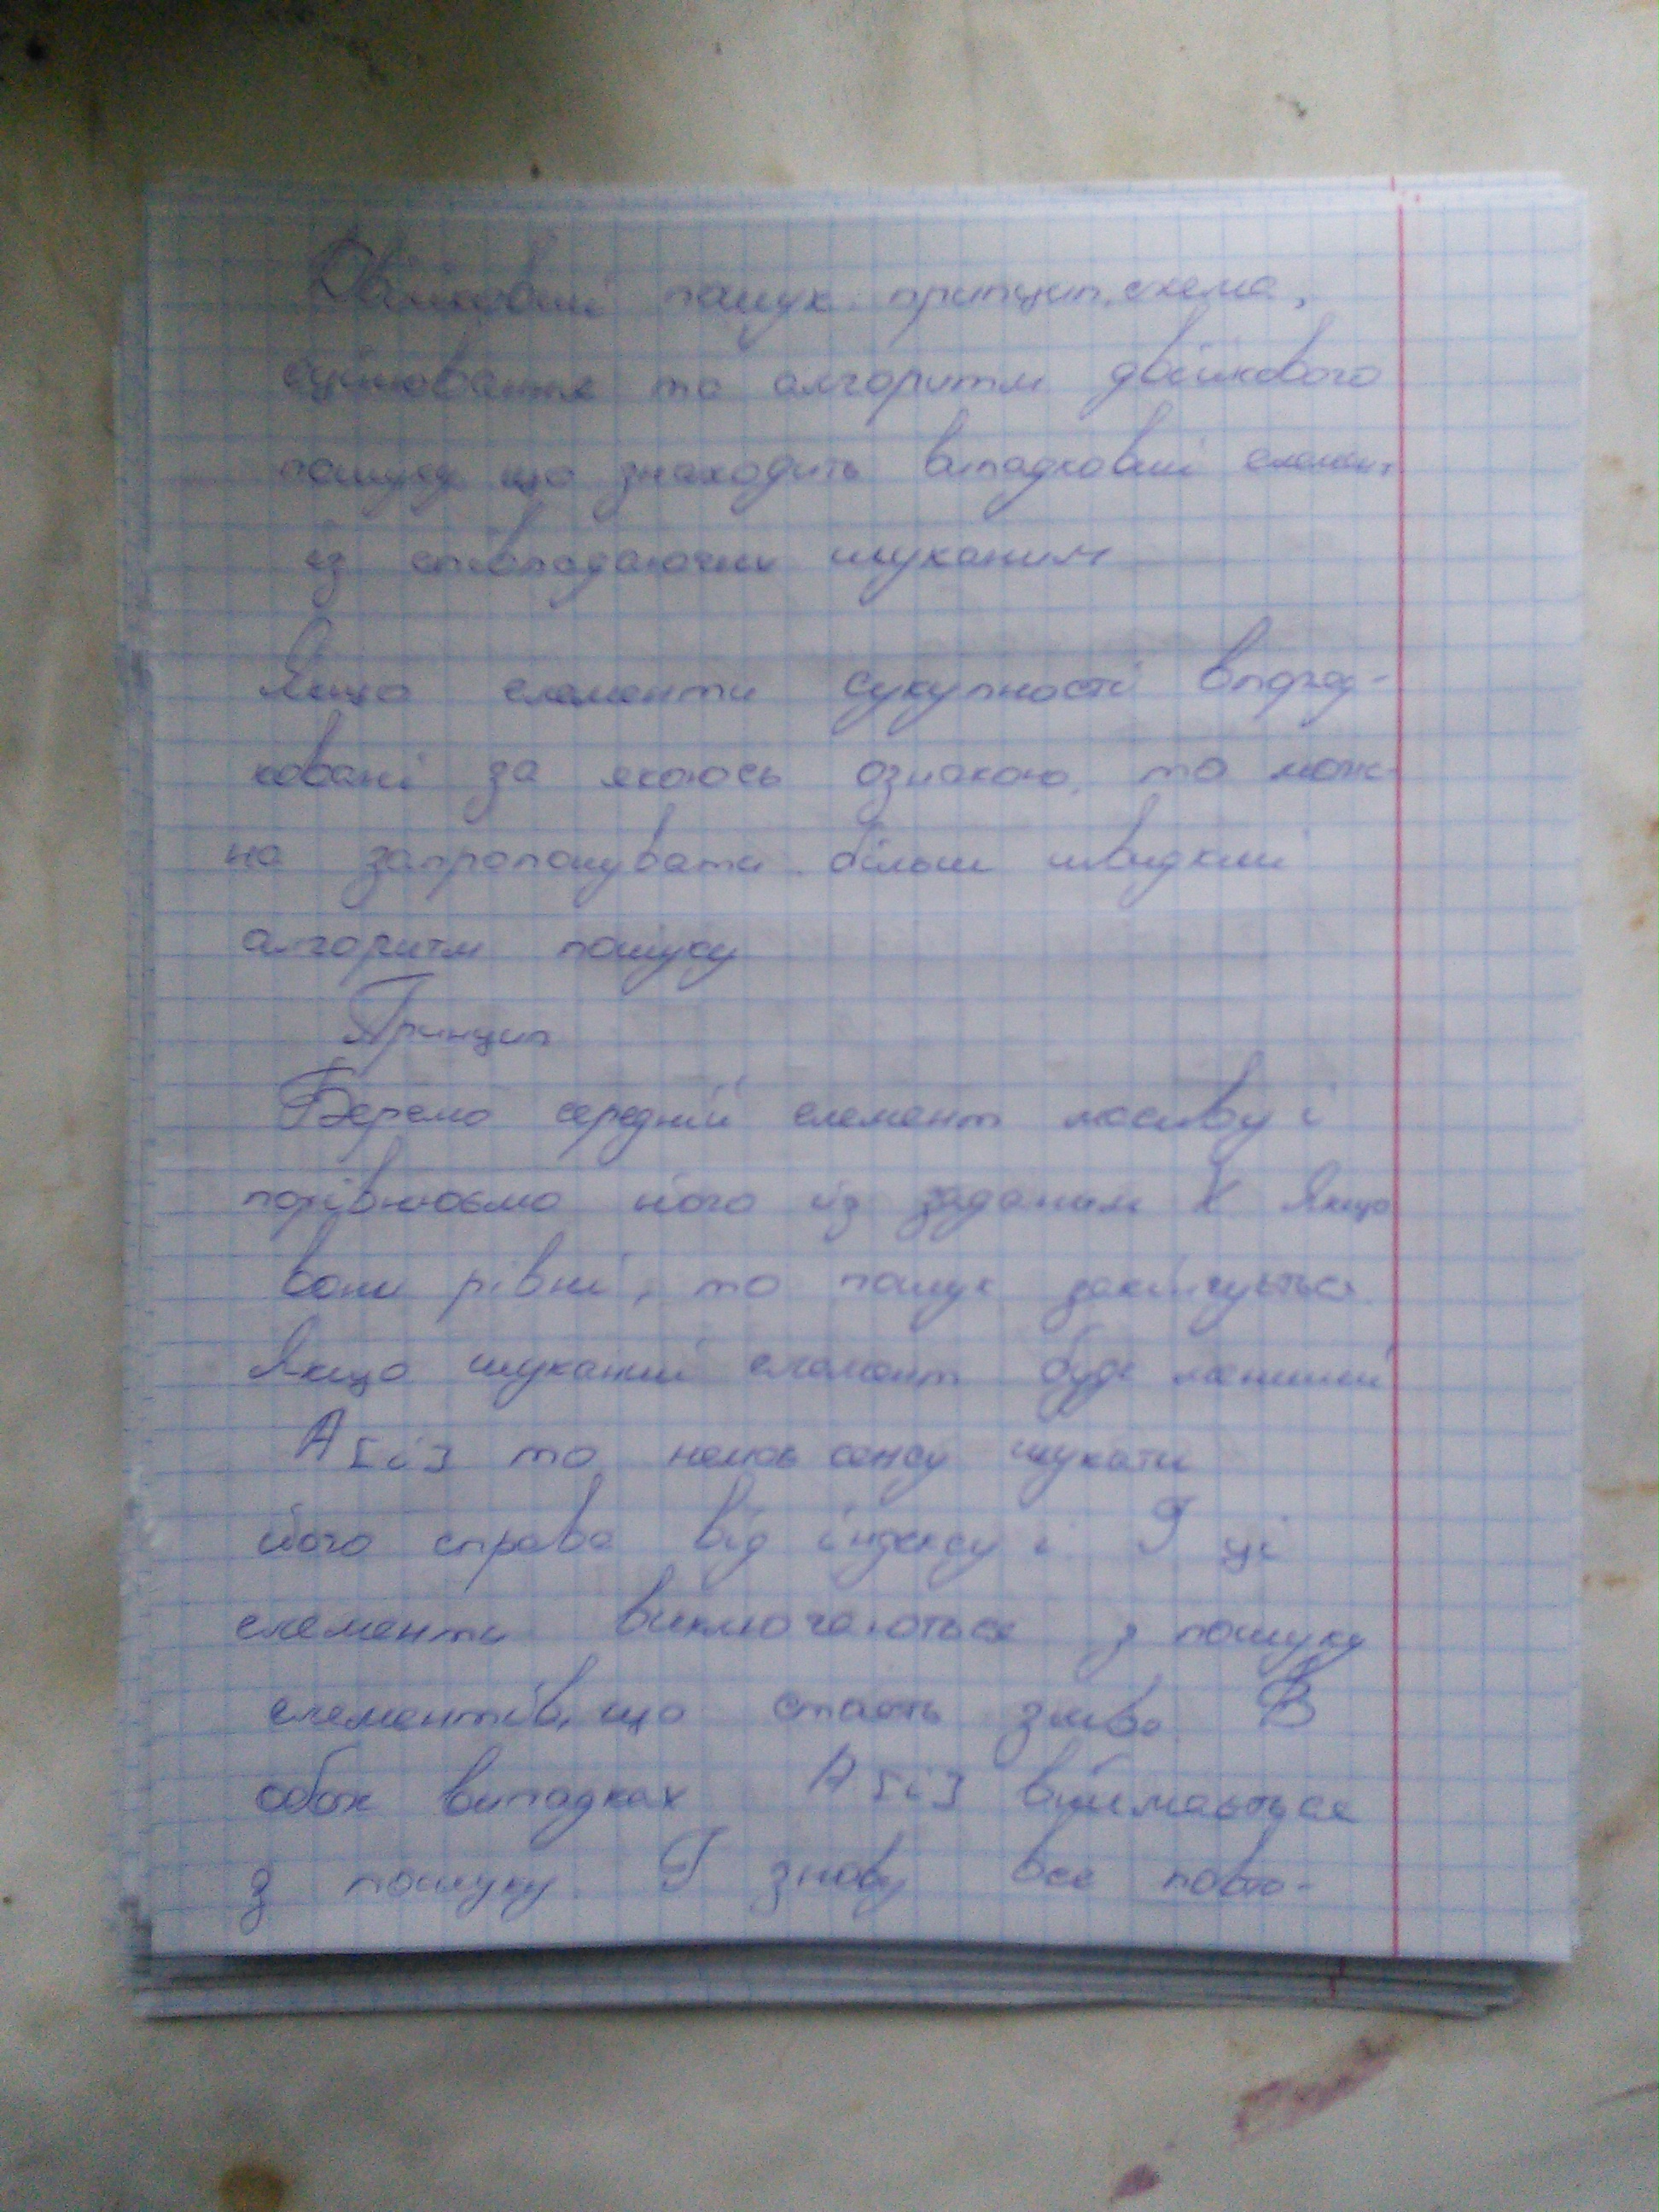 Двійковий пошук. принцип, схема,
оцінювання та алгоритм двійкового
пошуку що знаходить випадковий елемент
із співпадаючих шуканим
Якщо елементи сукупності впоряд-
ковані за якоюсь ознакою, то мож-
на запропонувати більш швидкий
алгоритм пошуку
Принцип
Беремо середній елемент масиву і
порівнюємо його із заданим X Якщо
вони рівні, то пошук закінчується.
Якщо шуканий елемент буде менший
A[i] то немає сенсу шукати
його справа від індексу i. І ці
елементи виключаються з пошуку
елементів, що стоять зліва. В
обох випадках A[i] виймається
з пошуку. І знову все повто-